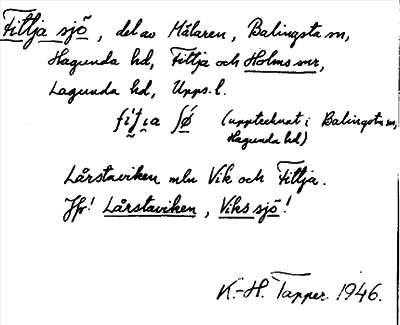 Fittja sjö, del av Mälaren, Balingsta sn,
Hagunda hd, Fittja och Holms snr,
Lagunda hd, Upps. l.
(upptecknat i Balingsta sn,
Hagunda hd)
Lårstaviken mln Vik och Fittja.
Jfr! Lårstaviken, Viks sjö!
K.-H. Tapper. 1946.